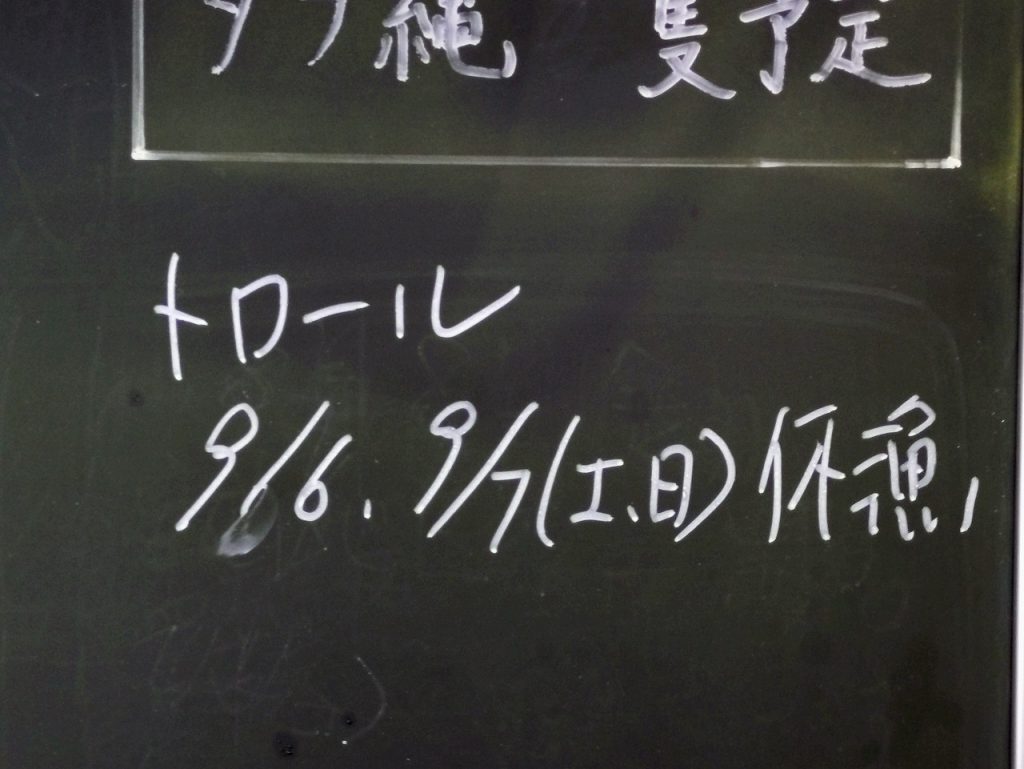 タラ縄　隻予定
トロール
9/6、9/7(土、日)休漁